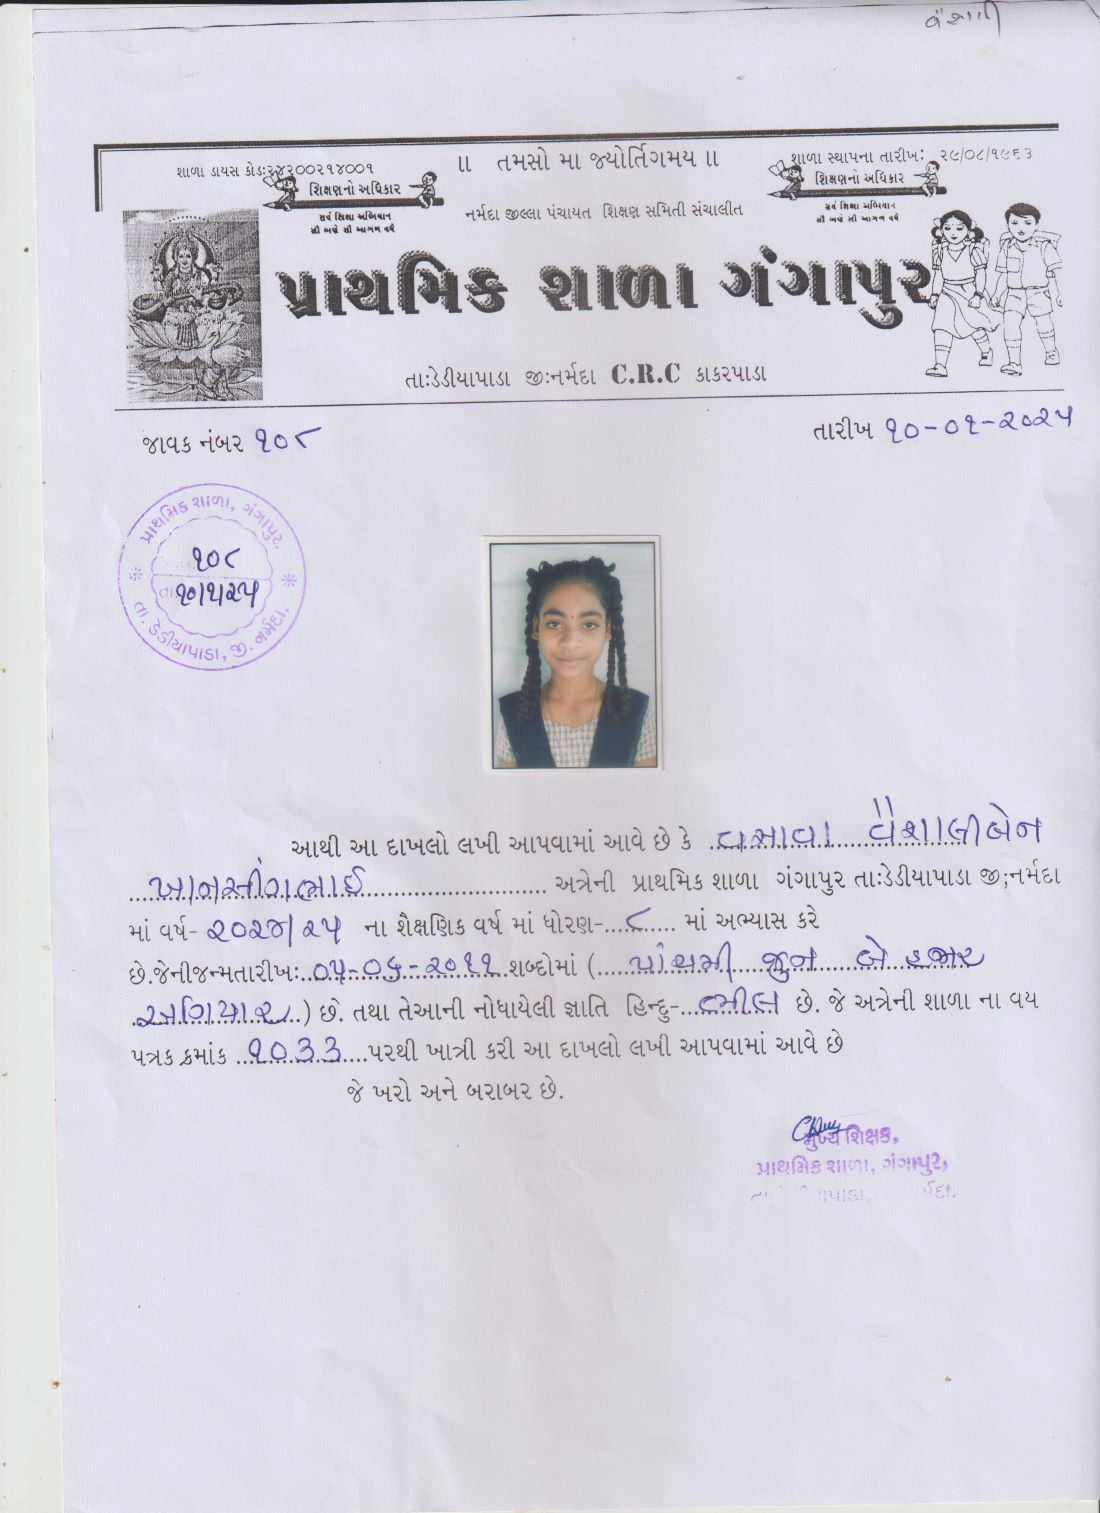 વૈશાલી
॥ તમસો મા જ્યોર્તિગમય ॥
શાળા ડાયસ કોડ:૨૪૨૦૦૨૧૪૦૦૧
શાળા સ્થાપના તારીખ: ૨૯/૦૮/૧૯૬૩
શિક્ષણનો અધિકાર
સર્વ શિક્ષા અભિયાન
સૌ ભણે સૌ આગળ વધે
શિક્ષણનો અધિકાર
સર્વ શિક્ષા અભિયાન
સૌ ભણે સૌ આગળ વધે
નર્મદા જીલ્લા પંચાયત શિક્ષણ સમિતી સંચાલીત
પ્રાથમિક શાળા ગંગાપુર
તા:ડેડીયાપાડા જી:નર્મદા C.R.C કાકરપાડા
જાવક નંબર ૧૦૮
તારીખ ૧૦-૦૧-૨૦૨૫
પ્રાથમિક શાળા, ગંગાપુર.
૧૦૮
તા. ડેડીયાપાડા, જી. નર્મદા.
આથી આ દાખલો લખી આપવામાં આવે છે કે વસાવા વૈશાલીબેન
ખાનસીંગભાઈ અત્રેની પ્રાથમિક શાળા ગંગાપુર તા:ડેડીયાપાડા જી;નર્મદા
માં વર્ષ- ૨૦૨૪/૨૫ ના શૈક્ષણિક વર્ષ માં ધોરણ-૮ માં અભ્યાસ કરે
છે.જેનીજન્મતારીખ: ૦૫-૦૬-૨૦૧૧ શબ્દોમાં ( પાંચમી જુન બે હજાર
અગિયાર ) છે. તથા તેઆની નોધાયેલી જ્ઞાતિ હિન્દુ- ભીલ છે. જે અત્રેની શાળા ના વય
પત્રક ક્રમાંક ૧૦૩૩ પરથી ખાત્રી કરી આ દાખલો લખી આપવામાં આવે છે
જે ખરો અને બરાબર છે.
મુખ્ય શિક્ષક,
પ્રાથમિક શાળા, ગંગાપુર,